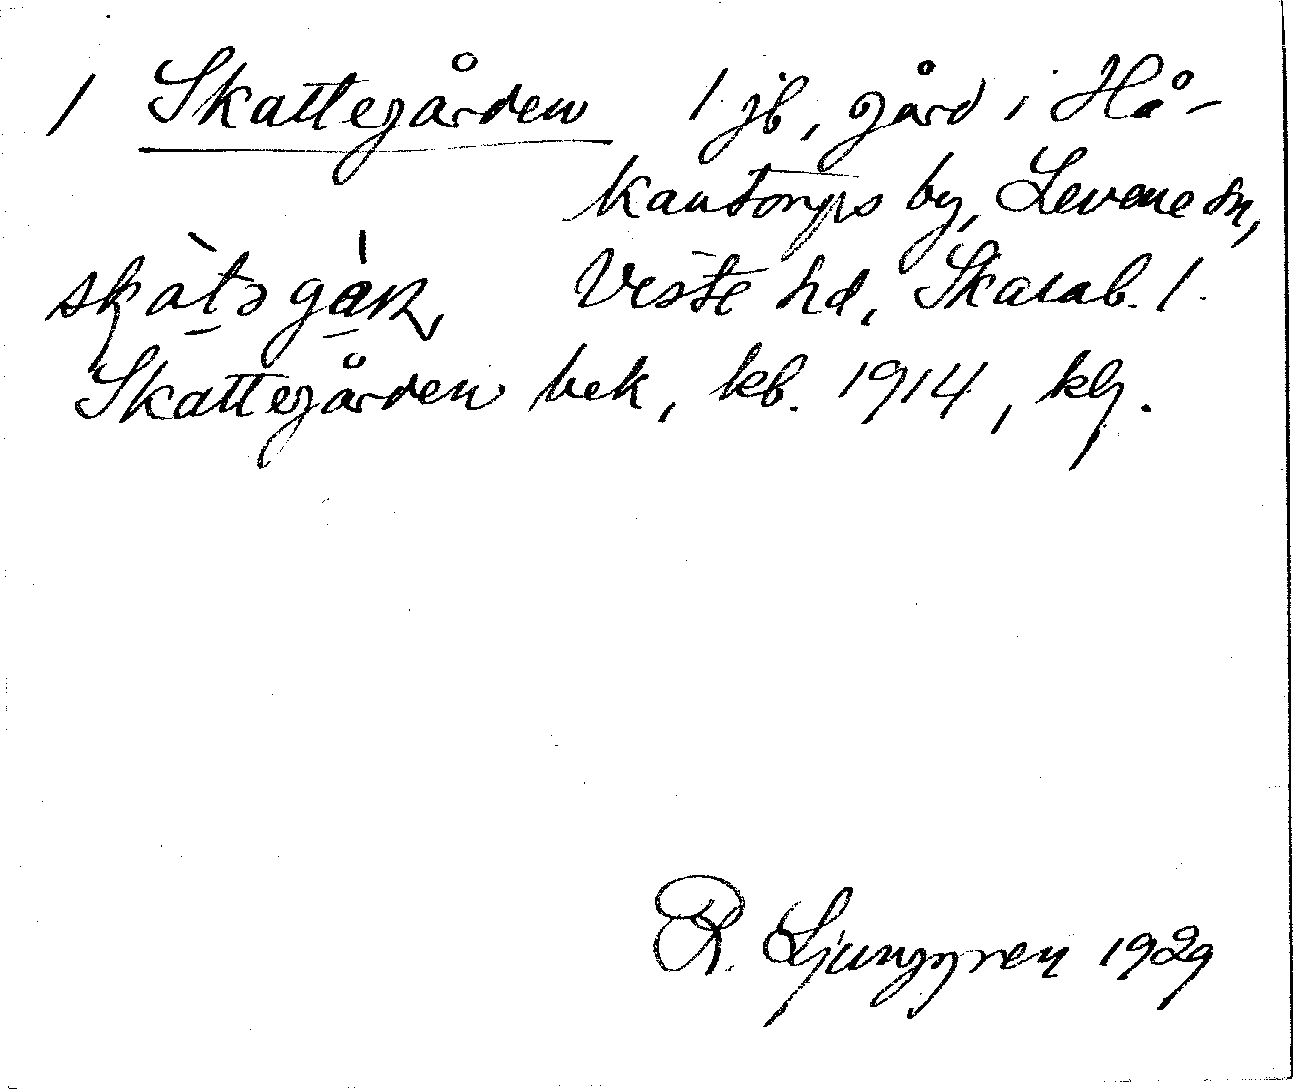 1 Skattegården 1 jb, gård i Hå-
kantorps by, Levene sn,
Viste hd, Skarab. l.
Skattegården bek, kb. 1914, klg.
R. Ljunggren 1929